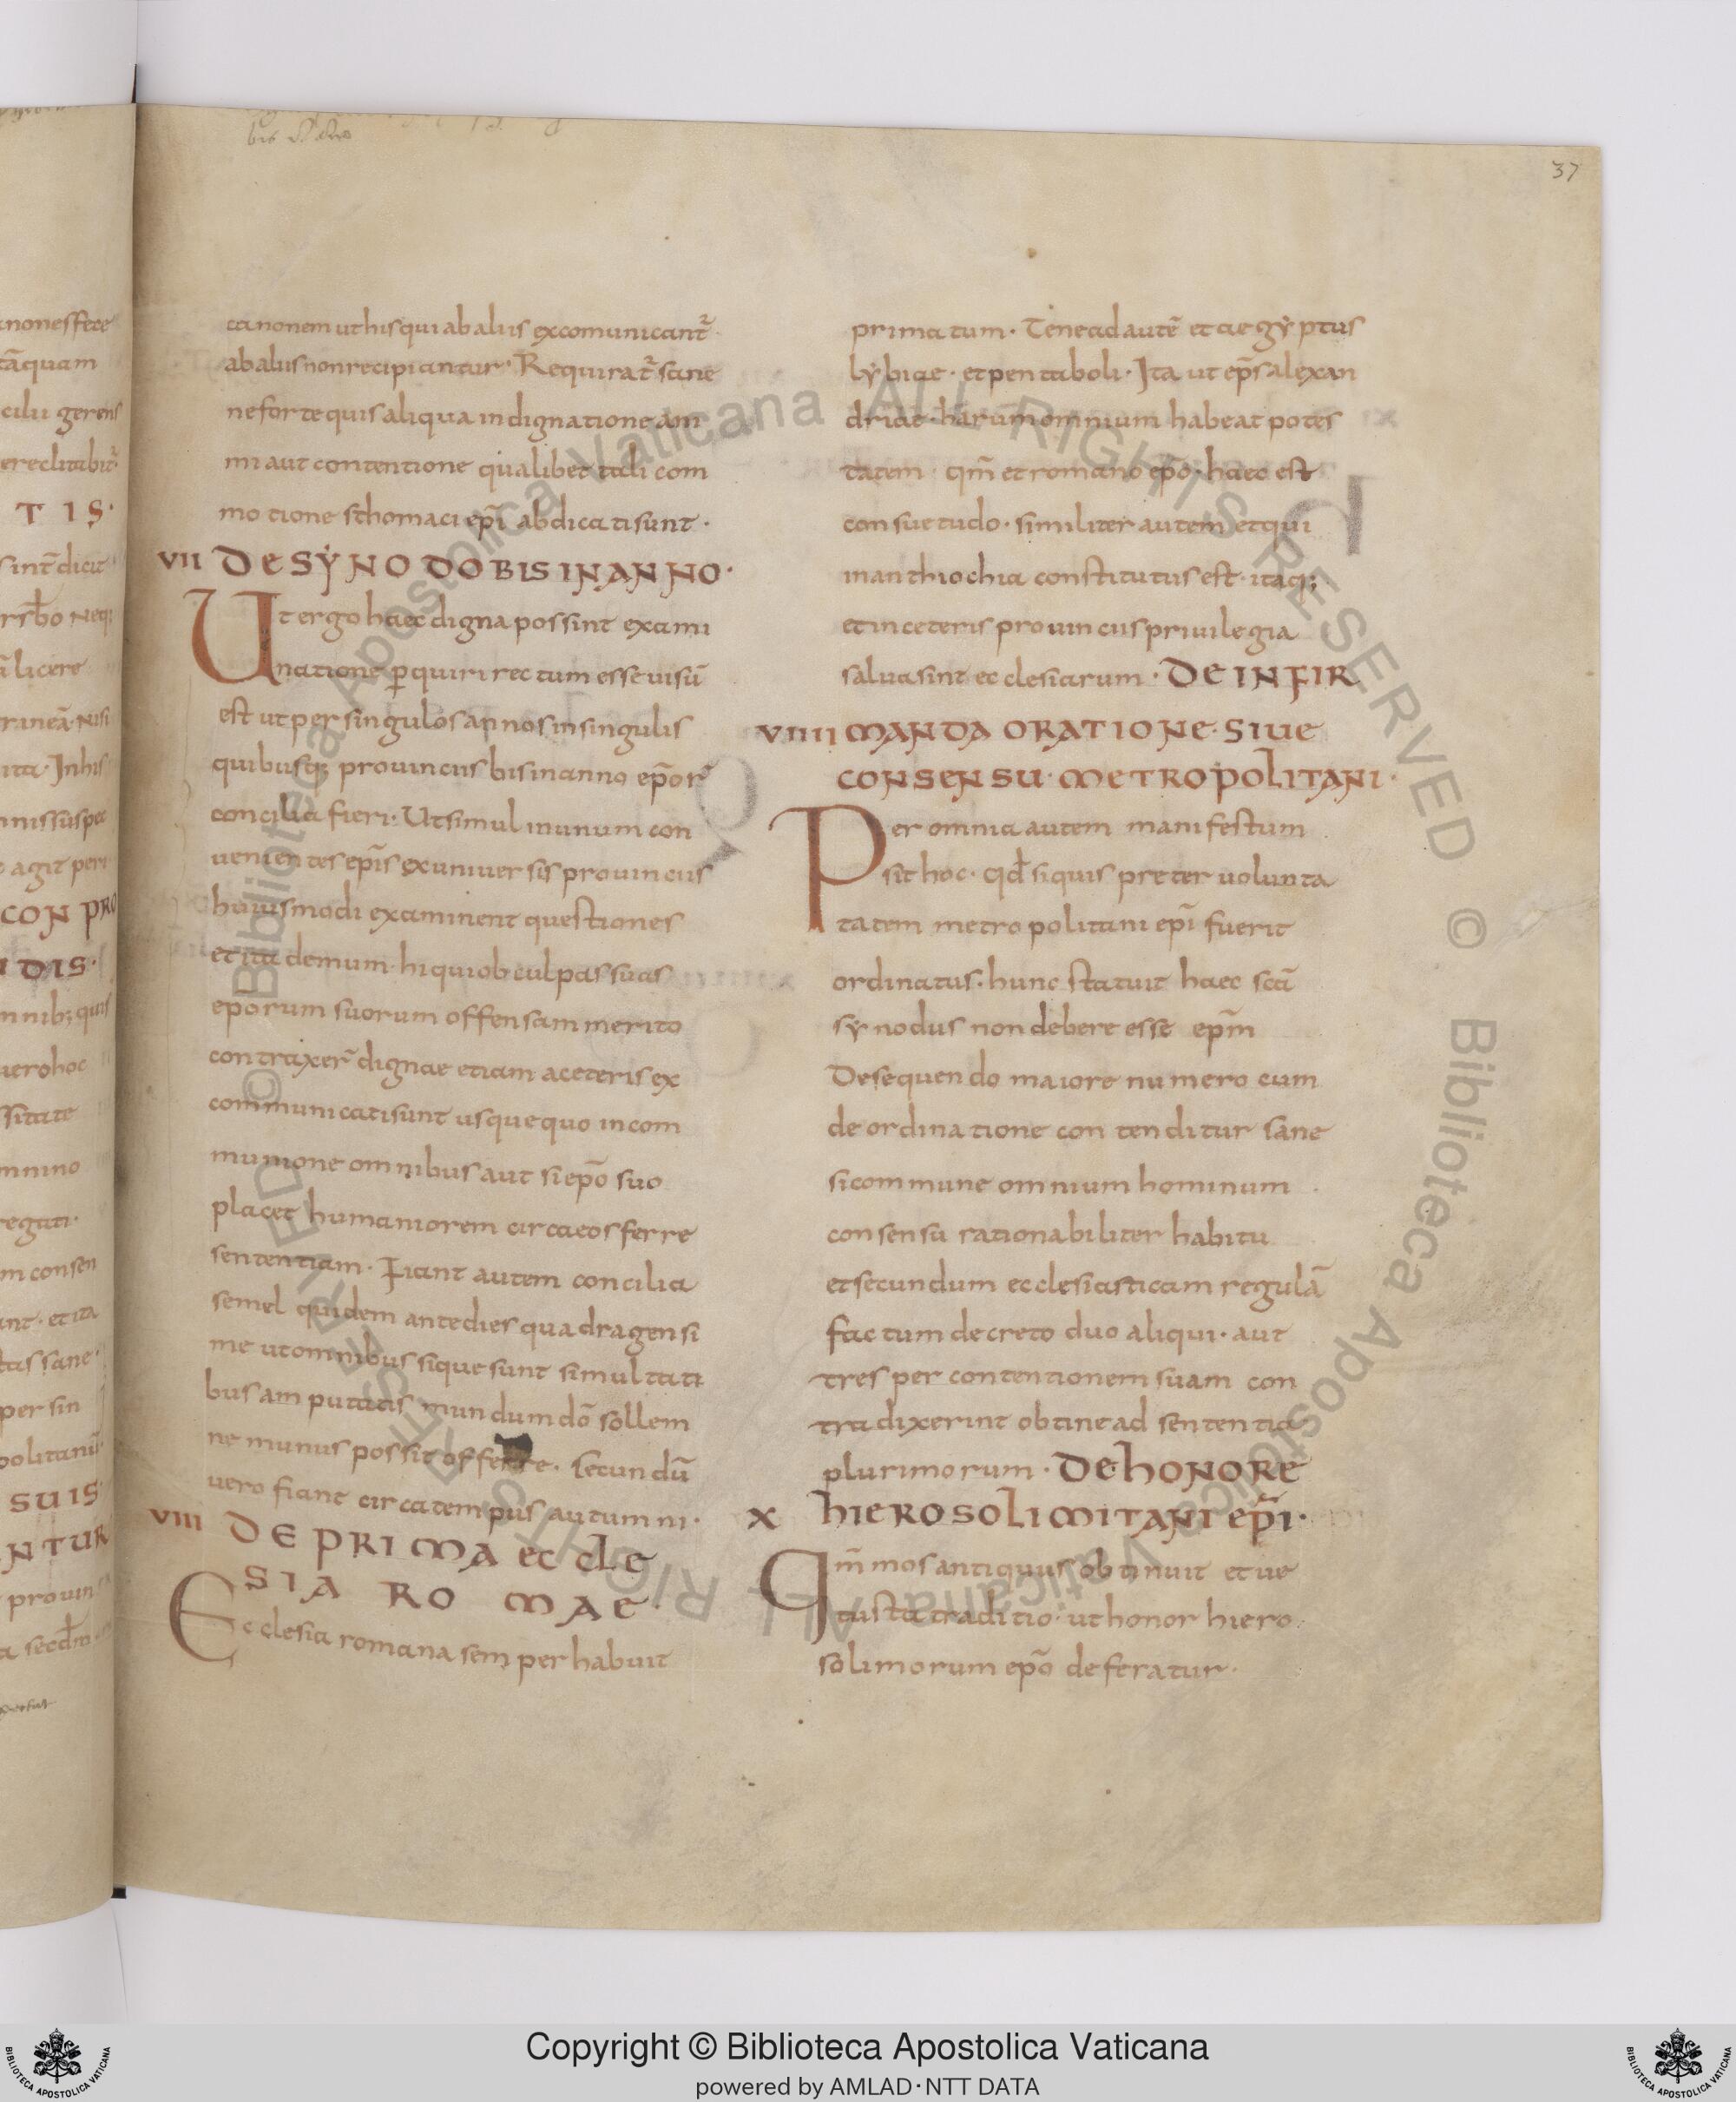 bis
37
canonem ut his qui ab aliis excomunicant̃
ab aliis non recipiantur · Requirat̃ sane
ne forte quis aliqua indignatione ani
mi aut contentione qualibet tali com
motione sthomaci ep̃i abdicati sunt ·
VII DE SẎNODO BIS IN ANNO ·
Ut ergo haec digna possint exami
natione ꝑquiri rectum esse uisũ
est ut per singulos annos in singulis
quibusq; prouinciis bis in anno ep̃or̃
concilia fieri · Ut simul in unum con
uenientes ep̃is ex uniuersis prouinciis
huiusmodi examinent questiones
et ita demum hi qui ob culpas suas
eporum suorum offensam merito
contraxer̃ dignae etiam a ceteris ex
communicati sunt usque quo in com
munione omnibus aut si ep̃o suo
placet humaniorem circa eos ferre
sententiam · Fiant autem concilia
semel quidem ante dies quadragensi
me ut omnibus sique sunt simultati
bus amputatis mundum dõ sollem
ne munus possit offerre · Secundũ
uero fiant circa tempus autumni ·
VIII DE PRIMA ECCLE
SIA ROMAE ·
Ecclesia romana semper habuit
primatum · Tenead autẽ et aegẏptus
lẏbiae · et pentaboli · Ita ut ep̃s alexan
driae · harum omnium habeat potes
tatem qm̃ et romano ep̃o · haec est
consuetudo · similiter autem et qui
in anthiochia constitutus est · itaq;
et in ceteris prouinciis priuilegia
salua sint ecclesiarum · DE INFIR
VIIII MANDA ORATIONE · SIUE
CONSENSU · METROPOLITANI ·
Per omnia autem manifestum
sit hoc · qd̃ si quis preter uolunta
tatem metropolitani ep̃i fuerit
ordinatus · hunc statuit haec scã
sẏnodus non debere esse ep̃m
De sequendo maiore numero cum
de ordinatione contenditur sane
si commune omnium hominum
consensu rationabiliter habitu
et secundum ecclesiasticam regulã
factum decreto duo aliqui · aut
tres per contentionem suam con
tradixerint obtinead sententia
plurimorum · DE HONORE
X HIEROSOLIMITANI EP̃I ·
Qm̃ mos antiquus obtinuit et ue
tusta traditio · ut honor hiero
solimorum ep̃o deferatur ·
© Biblioteca Apostolica Vaticana ALL RIGHTS RESERVED
© Biblioteca Apostolica Vaticana ALL RIGHTS RESERVED
Copyright © Biblioteca Apostolica Vaticana
powered by AMLAD·NTT DATA
BIBLIOTECA APOSTOLICA VATICANA
BIBLIOTECA APOSTOLICA VATICANA